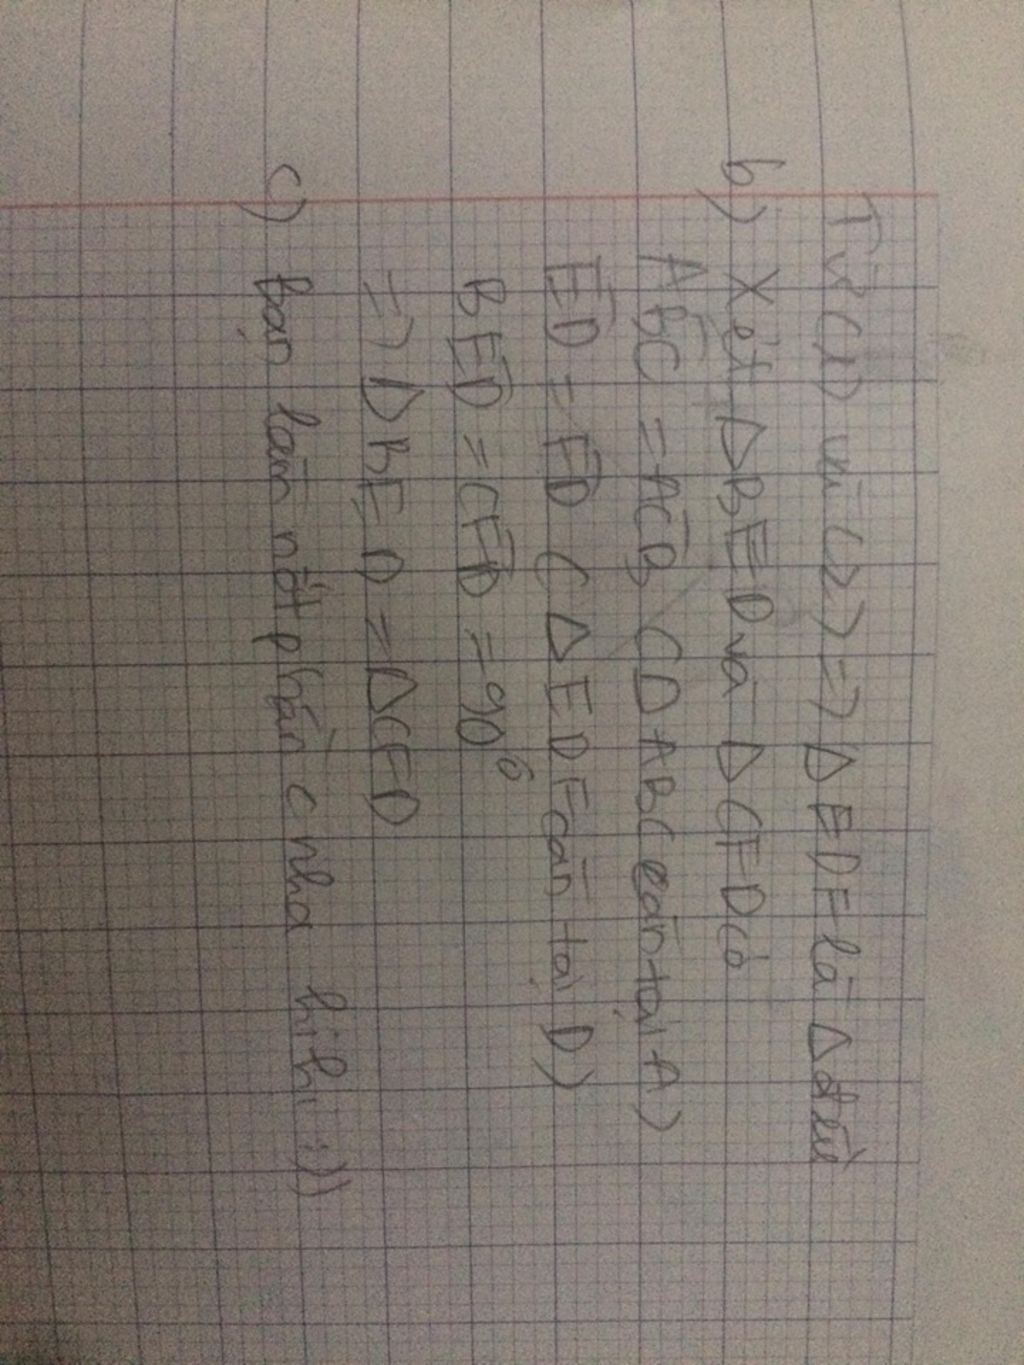 Từ (1) và (2) => Δ EDF là Δ đều
b) Xét Δ BED và Δ CFD có
ABC = ACB (Δ ABC cân tại A)
ED = FD (Δ EDF cân tại D)
BED = CFD = 90°
=> Δ BED = Δ CFD
c) Bạn làm nốt phần c nha hihi :))